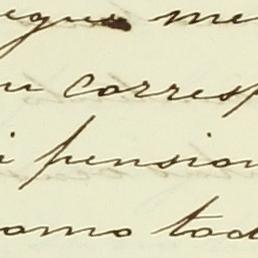 egue me
n corresp
i pension
como tod